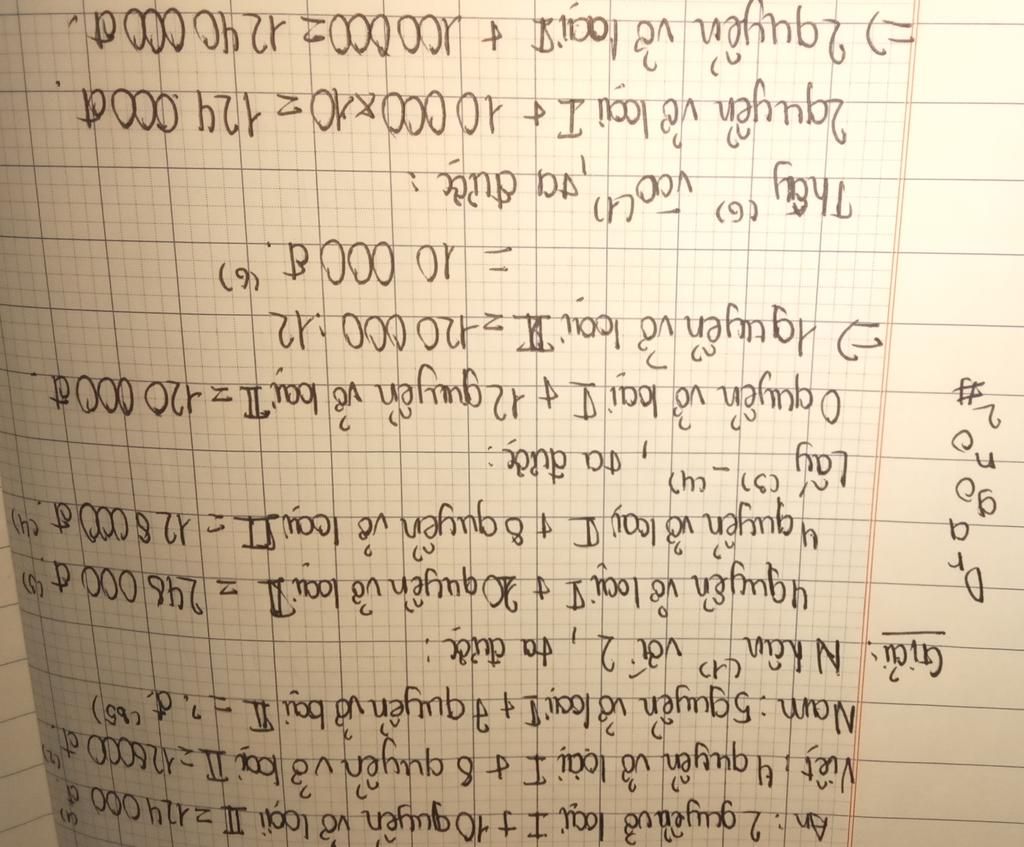 An: 2 quyển vở loại I + 10 quyển vở loại II = 124 000 đ (1)
Việt: 4 quyển vở loại I + 8 quyển vở loại II = 128000 đ. (2)
Nam: 5 quyển vở loại I + 7 quyển vở loại II = ? đ.
Giải: Nhân (1) với 2, ta được:
4 quyển vở loại I + 20 quyển vở loại II = 248 000 đ (3)
4 quyển vở loại I + 8 quyển vở loại II = 128 000 đ. (4)
Lấy (3) - (4), ta được:
0 quyển vở loại I + 12 quyển vở loại II = 120 000 đ.
=) 1 quyển vở loại II = 120 000 : 12
= 10 000 đ. (6)
Thay (6) vào (1), ta được:
2 quyển vở loại I + 10 000 x 10 = 124 000 đ.
=) 2 quyển vở loại I + 100 000 = 1240 000 đ.